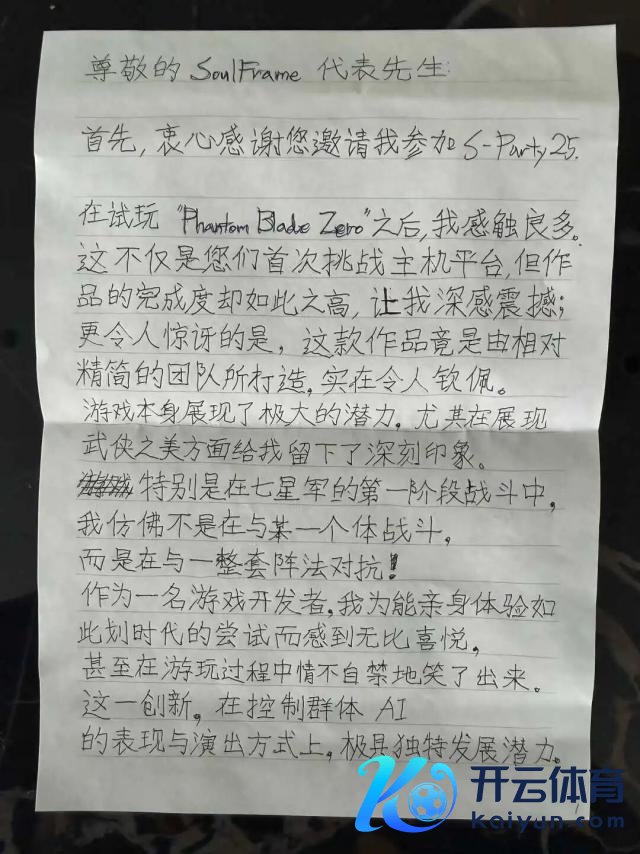 尊敬的 SoulFrame 代表先生:
首先，衷心感谢您邀请我参加 S-Party 25.
在试玩 "Phantom Blade Zero" 之后，我感触良多。
这不仅是您们首次挑战主机平台，但作
品的完成度却如此之高，让我深感震撼；
更令人惊讶的是，这款作品竟是由相对
精简的团队所打造，实在令人钦佩。
游戏本身展现了极大的潜力，尤其在展现
武侠之美方面给我留下了深刻印象。
特别是在七星军的第一阶段战斗中，
我仿佛不是在与某一个体战斗，
而是在与一整套阵法对抗！
作为一名游戏开发者，我为能亲身体验如
此划时代的尝试而感到无比喜悦，
甚至在游玩过程中情不自禁地笑了出来。
这一创新，在控制群体 AI
的表现与演出方式上，极具独特发展潜力。
开云体育
kaiyun.com